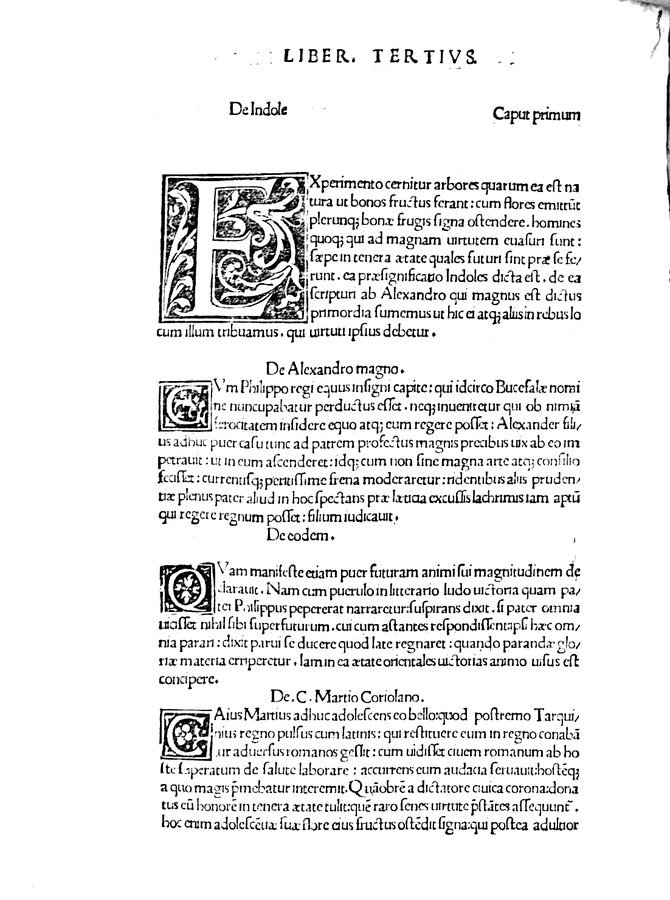 LIBER. TERTIVS.
De Indole
Caput primum
EXperimento cernitur arbores quarum ea est na
tura ut bonos fructus ferant: cum flores emittũt
plerunq; bonæ frugis signa ostendere. homines
quoq; qui ad magnam uirtutem euasuri sunt:
sæpe in tenera ætate quales futuri sint præ se fe/
runt. ea præsignificatio Indoles dicta est. de ea
scripturi ab Alexandro qui magnus est dictus
primordia sumemus ut hic ei atq; alius in rebus lo
cum illum tribuamus. qui uirtuti ipsius debetur.
De Alexandro magno.
CVm Philippo regi equus insigni capite: qui idcirco Bucefalæ nomi
ne nuncupabatur perductus esset. neq; inueniretur qui ob nimiã
ferocitatem insidere equo atq; cum regere posset: Alexander fili/
us adhuc puer casu tunc ad patrem profectus magnis precibus uix ab eo im
petrauit: ut in eum ascenderet: idq; cum non sine magna arte atq; consilio
fecisset: currentisq; peritissime frena moderaretur: ridentibus aliis pruden/
tiæ plenus pater aliud in hoc spectans præ læticia excussis lachrimis iam aptũ
qui regere regnum posset: filium iudicauit.
De eodem.
QVam manifeste etiam puer futuram animi sui magnitudinem de
clarauit. Nam cum puerulo in litterario ludo uictoria quam pa/
ter Philippus pepererat narraretur: suspirans dixit. si pater omnia
uicisset nibil sibi superfuturum. cui cum astantes respondissent ap̃si hæc om/
nia parari: dixit parui se ducere quod late regnaret: quando parandæ glo/
riæ materia erriperetur. Iam in ea ætate orientales uictorias animo uisus est
concipere.
De. C. Martio Coriolano.
CAius Martius adhuc adolescens eo bello: quod postremo Tarqui/
nius regno pulsus cum latinis: qui restituere eum in regno conabã
tur aduersus romanos gessit: cum uidisset ciuem romanum ab ho
ste superatum de salute laborare: accurrens cum audacia seruauit: hostẽq;
a quo magis p̃mebatur interemit. Quãobrẽ a dictatore ciuica corona: dona
tus eũ honorẽ in tenera ætate tulit: quẽ raro senes uirtute p̃stãtes assequunt̃.
hoc enim adolescẽtiæ suæ flore eius fructus ostẽdit signa: qui postea adultior